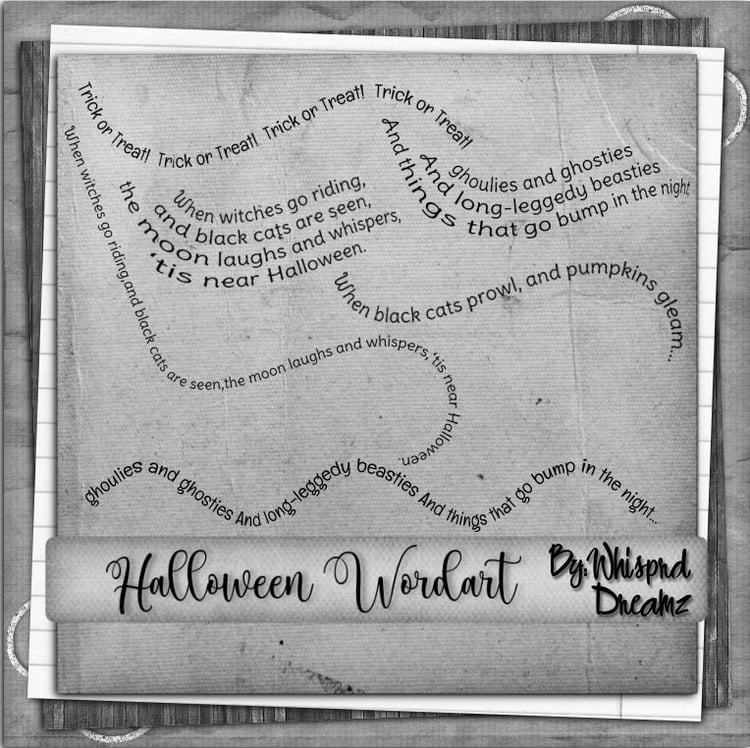 Trick or Treat! Trick or Treat! Trick or Treat! Trick or Treat!
When witches go riding,
and black cats are seen,
the moon laughs and whispers,
'tis near Halloween.
ghoulies and ghosties
And long-leggedy beasties
And things that go bump in the night
When witches go riding,and black cats are seen,the moon laughs and whispers, 'tis near Halloween.
When black cats prowl, and pumpkins gleam...
ghoulies and ghosties And long-leggedy beasties And things that go bump in the night...
Halloween Wordart
By:Whisprd
Dreamz